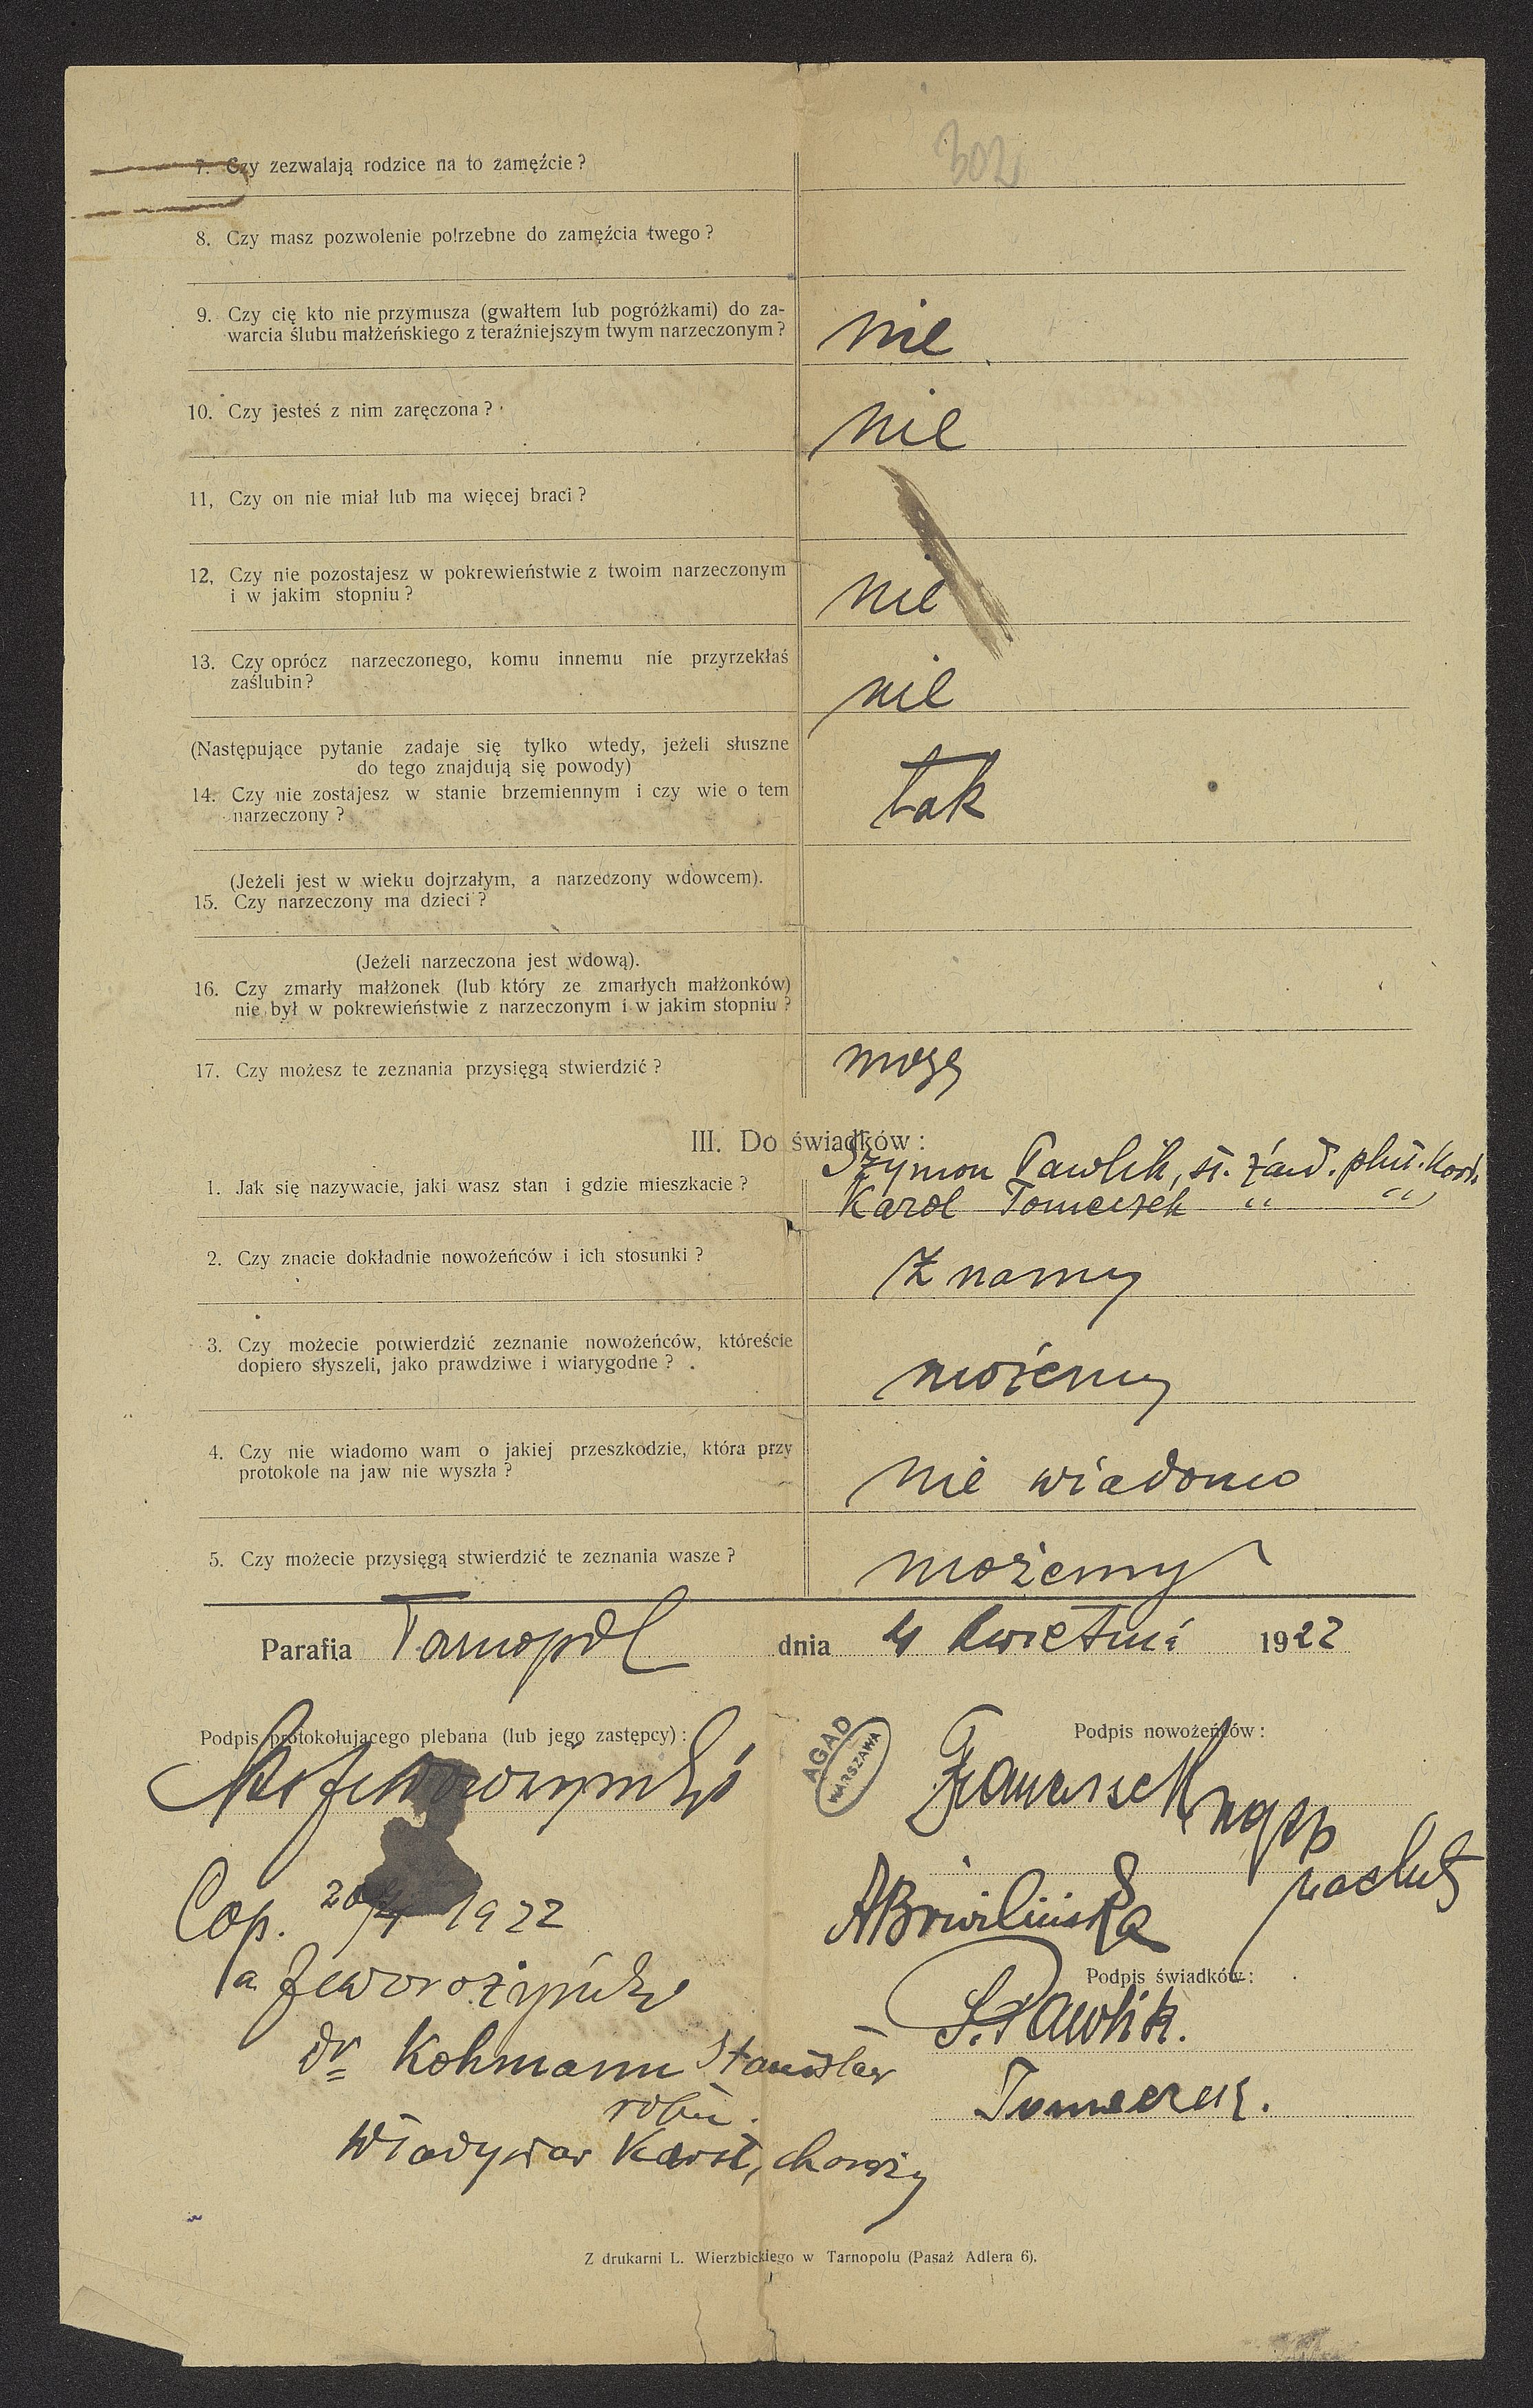 302
7. Czy zezwalają rodzice na to zamęźcie?
8. Czy masz pozwolenie potrzebne do zamęźcia twego?
9. Czy cię kto nie przymusza (gwałtem lub pogróżkami) do za-
warcia ślubu małżeńskiego z teraźniejszym twym narzeczonym?
nie
10. Czy jesteś z nim zaręczona?
nie
11, Czy on nie miał lub ma więcej braci?
12, Czy nie pozostajesz w pokrewieństwie z twoim narzeczonym
i w jakim stopniu?
nie
13. Czy oprócz narzeczonego, komu innemu nie przyrzekłaś
zaślubin?
nie
(Następujące pytanie zadaje się tylko wtedy, jeżeli słuszne
do tego znajdują się powody)
14. Czy nie zostajesz w stanie brzemiennym i czy wie o tem
narzeczony?
tak
(Jeżeli jest w wieku dojrzałym, a narzeczony wdowcem).
15. Czy narzeczony ma dzieci?
(Jeżeli narzeczona jest wdową).
16. Czy zmarły małżonek (lub który ze zmarłych małżonków)
nie był w pokrewieństwie z narzeczonym i w jakim stopniu?
17. Czy możesz te zeznania przysięgą stwierdzić?
mogę
III. Do świadków:
1. Jak się nazywacie, jaki wasz stan i gdzie mieszkacie?
Szymon Pawlik, st. żand. plut.
Karol Tomeczek " "
2. Czy znacie dokładnie nowożeńców i ich stosunki?
Znamy
3. Czy możecie potwierdzić zeznanie nowożeńców, któreście
dopiero słyszeli, jako prawdziwe i wiarygodne?
możemy
4. Czy nie wiadomo wam o jakiej przeszkodzie, która przy
protokole na jaw nie wyszła?
nie wiadomo
5. Czy możecie przysięgą stwierdzić te zeznania wasze?
możemy
Parafia Tarnopol dnia 4 kwietnia 1922
Podpis protokołującego plebana (lub jego zastępcy):
AGAD
WARSZAWA
Podpis nowożeńców:
Franciszek
Cop. 20/4 1922
Podpis świadków:
S. Pawlik.
dr Kohmann Stanisław
Tomeczek.
Władysław Karst, chorąży
Z drukarni L. Wierzbickiego w Tarnopolu (Pasaż Adlera 6).